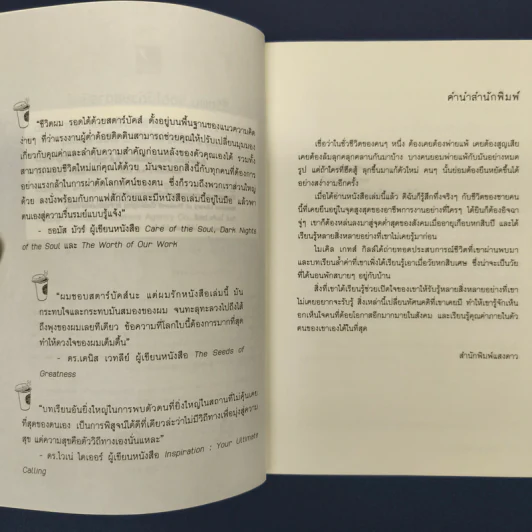 "ชีวิตผม รอดได้ด้วยสตาร์บัคส์ ตั้งอยู่บนพื้นฐานของแนวความคิด
ง่ายๆ ที่ว่าแรงงานผู้ต่ำต้อยติดดินสามารถช่วยคุณให้ปรับเปลี่ยนมุมมอง
เกี่ยวกับคุณค่าและลำดับความสำคัญก่อนหลังของตัวคุณเองได้ รวมทั้ง
สามารถมอบชีวิตใหม่แก่คุณได้ด้วย มันจะบอกสิ่งนี้กับทุกคนที่ต้องการ
อย่างแรงกล้าในการผ่าตัดโลกทัศน์ของตน ซึ่งก็รวมถึงพวกเราส่วนใหญ่
ด้วย ลงนั่งพร้อมกับกาแฟสักถ้วยและมีหนังสือเล่มนี้อยู่ในมือ แล้วพา
ตนเองสู่ความรื่นรมย์แบบรู้แจ้ง"
- ธอมัส มัวร์ ผู้เขียนหนังสือ Care of the Soul, Dark Nights
of the Soul และ The Worth of Our Work
"ผมชอบสตาร์บัคส์นะ แต่ผมรักหนังสือเล่มนี้ มัน
กระทบใจและกระทบมันสมองของผม จนทะลุทะลวงไปถึงไส้
ถึงพุงของผมเลยทีเดียว ข้อความที่โลกใบนี้ต้องการมากที่สุด
ทำให้ดวงใจของผมเต็มตื้น"
- ดร.เดนิส เวทลีย์ ผู้เขียนหนังสือ The Seeds of
Greatness
"บทเรียนอันยิ่งใหญ่ในการพบตัวตนที่ยิ่งใหญ่ในสถานที่ไม่คุ้นเคย
ที่สุดของตนเอง เป็นการพิสูจน์ได้ดีทีเดียวล่ะว่าไม่มีวิถีทางเพื่อมุ่งสู่ความ
สุข แต่ความสุขคือตัววิถีทางเองนั่นแหละ"
- ดร.ไวเน่ ไดเออร์ ผู้เขียนหนังสือ Inspiration : Your Ultimate
Calling
คำนำสำนักพิมพ์
เชื่อว่าในชั่วชีวิตของคนๆ หนึ่ง ต้องเคยต้องพ่ายแพ้ เคยต้องสูญเสีย
เคยต้องล้มลุกคลุกคลานกันมาบ้าง บางคนยอมพ่ายแพ้กับมันอย่างหมด
รูป แต่ถ้าใครที่ฮึดสู้ ลุกขึ้นมาแก้ตัวใหม่ คนๆ นั้นย่อมต้องยืนหยัดขึ้นได้
อย่างสง่างามอีกครั้ง
เมื่อได้อ่านหนังสือเล่มนี้แล้ว ดิฉันก็รู้สึกทึ่งจริงๆ กับชีวิตของชายคน
นี้ที่เคยยืนอยู่ในจุดสูงสุดของอาชีพการงานอย่างที่ใครๆ ได้ยินก็ต้องอิจฉา
จู่ๆ เขาก็ต้องหล่นลงมาสู่จุดต่ำสุดของสังคมเมื่ออายุเกือบหกสิบปี และได้
เรียนรู้หลายสิ่งหลายอย่างที่เขาไม่เคยรู้มาก่อน
ไมเคิล เกทส์ กิลล์ได้ถ่ายทอดประสบการณ์ชีวิตที่เขาผ่านพบมา
และบทเรียนล้ำค่าที่เขาเพิ่งได้เรียนรู้เอาเมื่อวัยหกสิบเศษ ซึ่งน่าจะเป็นวัย
ที่ได้นอนพักสบายๆ อยู่กับบ้าน
สิ่งที่เขาได้เรียนรู้ช่วยเปิดใจของเขาให้รับรู้หลายสิ่งหลายอย่างที่เขา
ไม่เคยอยากจะรับรู้ สิ่งเหล่านี้เปลี่ยนทัศนคติที่เขาเคยมี ทำให้เขารู้จักเห็น
อกเห็นใจคนที่ด้อยโอกาสอีกมากมายในสังคม และเรียนรู้คุณค่าภายในตัว
ตนของเขาเองได้ในที่สุด
สำนักพิมพ์แสงดาว